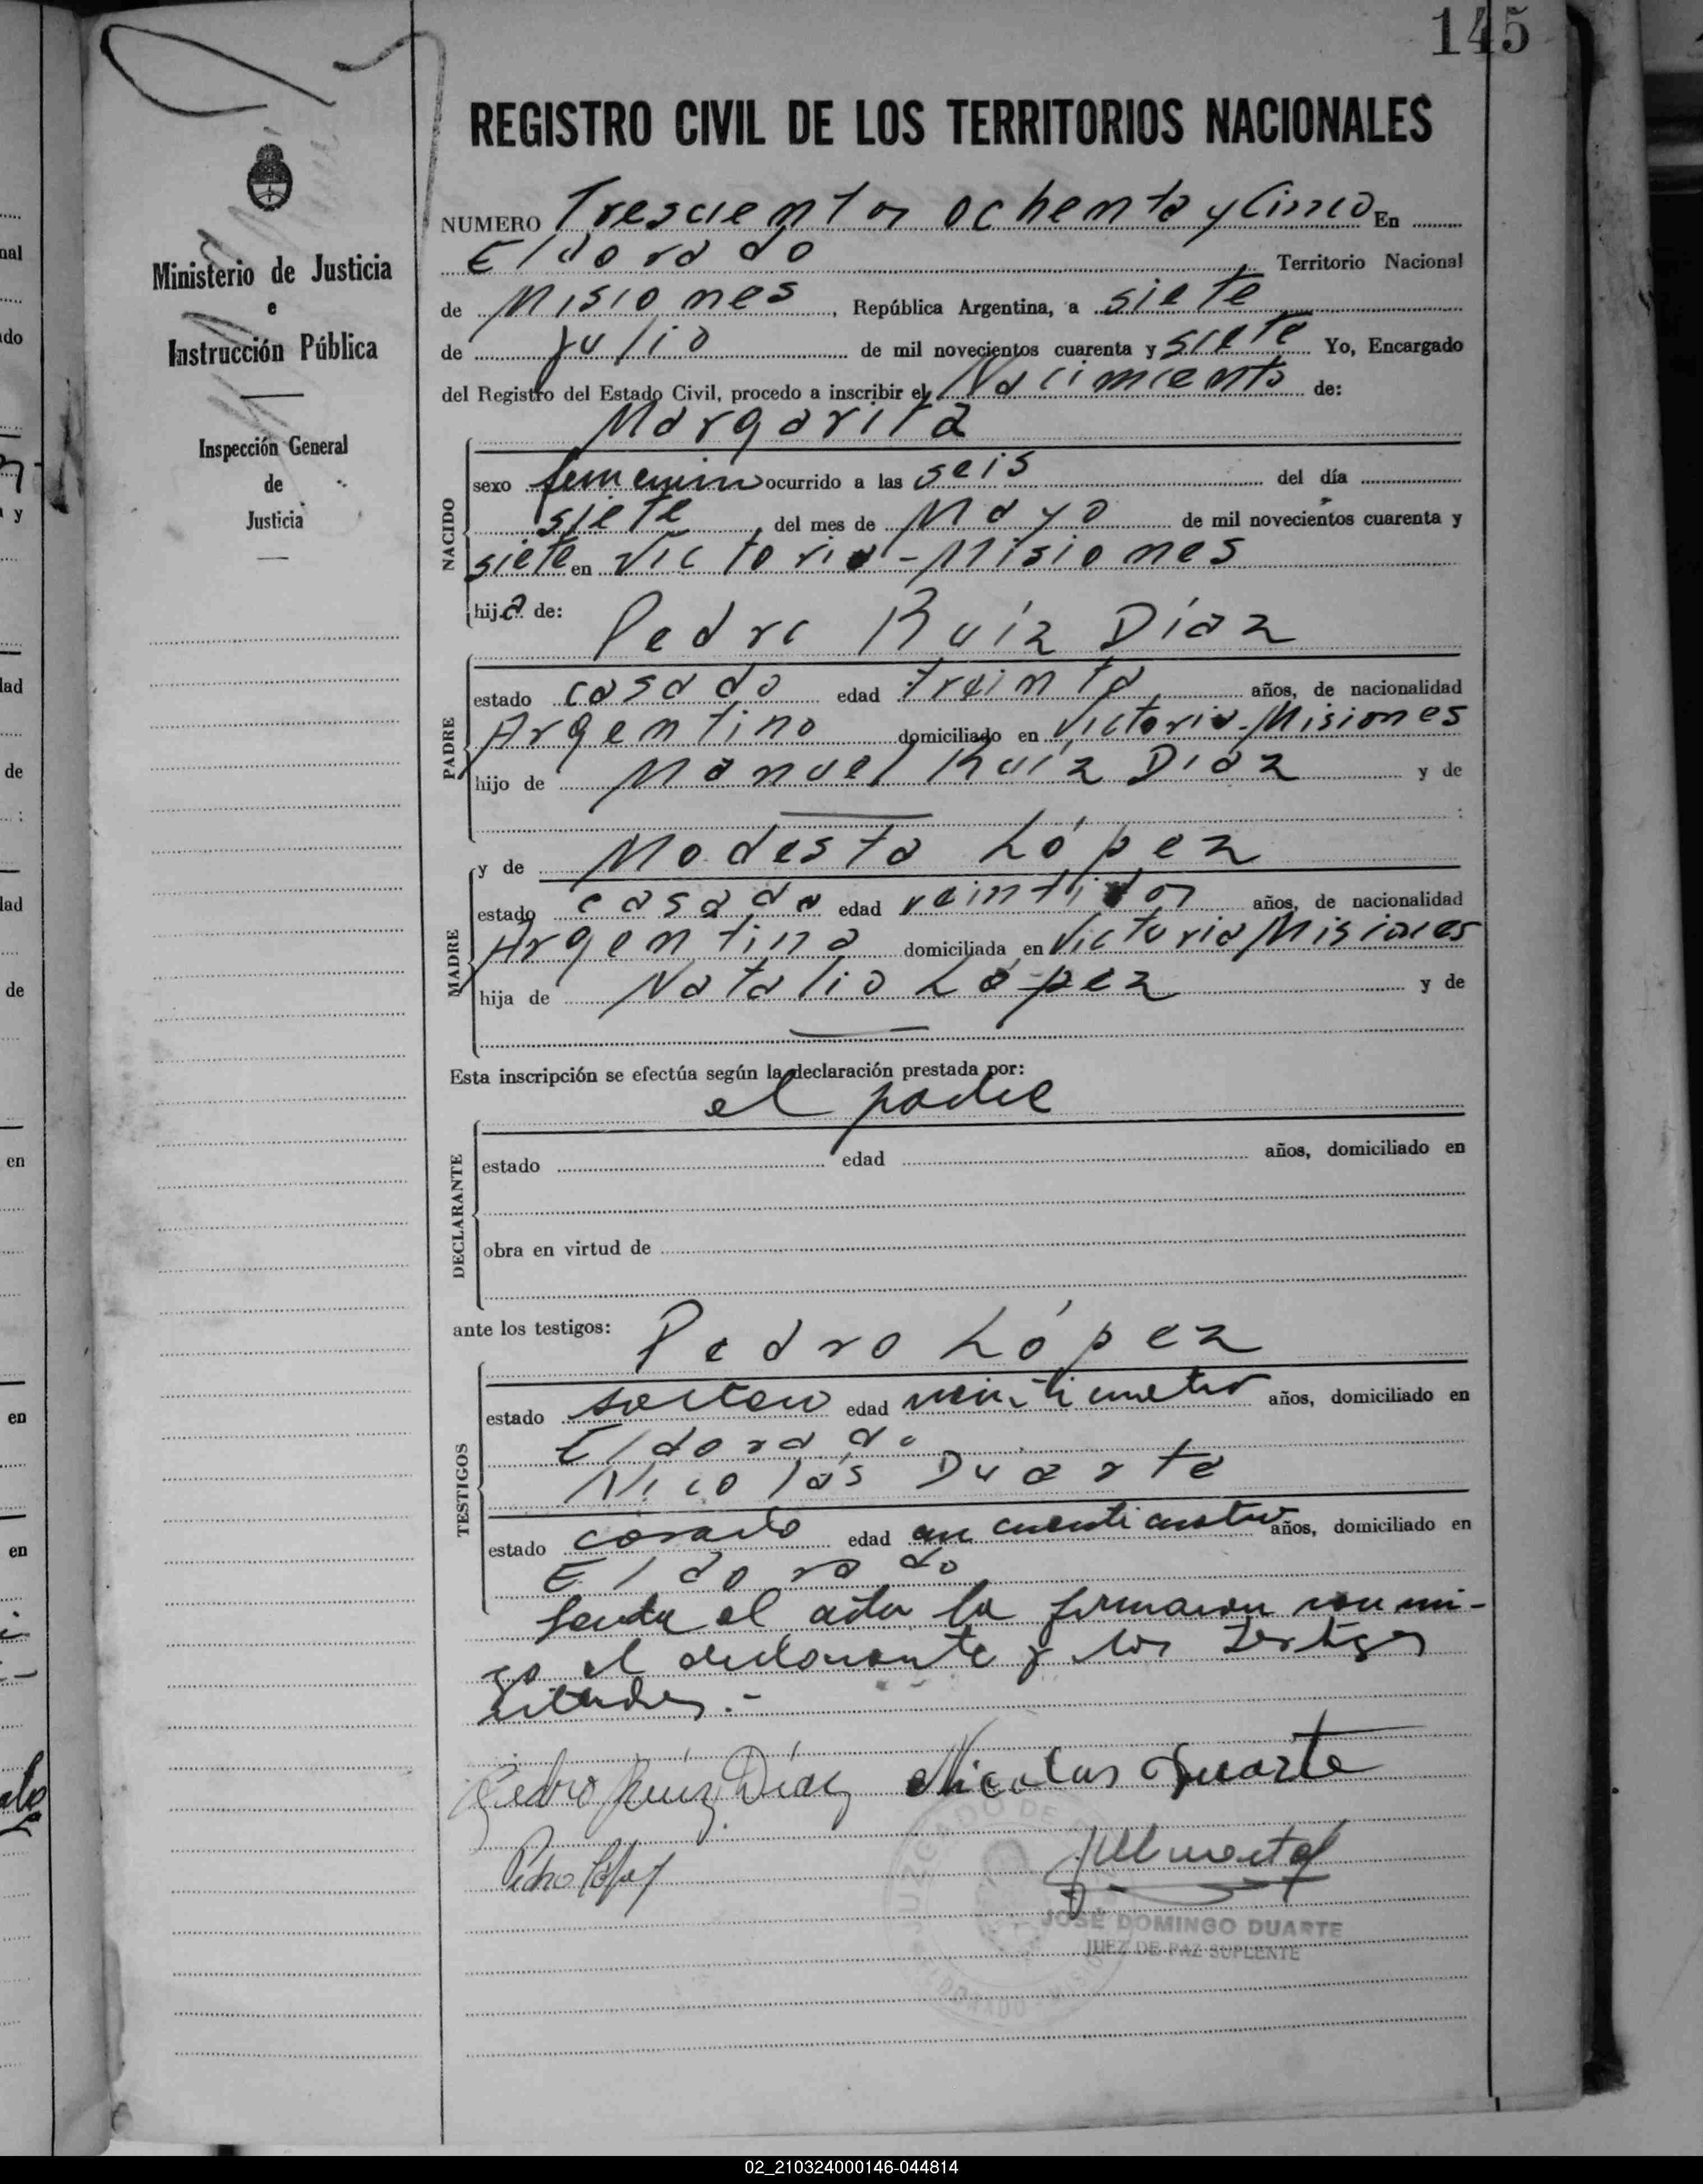 145
REGISTRO CIVIL DE LOS TERRITORIOS NACIONALES
Ministerio de Justicia
e
Instrucción Pública
Inspección General
de
Justicia
NUMERO Trescientos ochenta y Cinco En
Eldorado Territorio Nacional
de Misiones, República Argentina, a siete
de Julio de mil novecientos cuarenta y siete Yo, Encargado
del Registro del Estado Civil, procedo a inscribir el Nacimiento de:
Margarita
NACIDO
sexo femenino ocurrido a las seis del día
siete, del mes de Mayo de mil novecientos cuarenta y
siete en Victoria - Misiones
hija de: Pedro Ruíz Díaz
PADRE
estado casado edad treinta años, de nacionalidad
Argentino domiciliado en Victoria - Misiones
hijo de Manuel Ruíz Díaz y de
y de Modesta López
MADRE
estado casada edad veintidos años, de nacionalidad
Argentina domiciliada en Victoria Misiones
hija de Natalio López y de
Esta inscripción se efectúa según la declaración prestada por:
el padre
DECLARANTE
estado edad años, domiciliado en
obra en virtud de
ante los testigos: Pedro López
TESTIGOS
estado soltero edad veinticuatro años, domiciliado en
Eldorado
Nicolás Duarte
estado casado edad cincuenticuatro años, domiciliado en
Eldorado
Leida el acta la firmaron conmi-
go el declarante y los testigos
citados.-
Pedro Ruíz Díaz Nicolas Duarte
Pedro López
JUZGADO DE
ELDORADO - MISIONES
JOSÉ DOMINGO DUARTE
JUEZ DE PAZ SUPLENTE
02_210324000146-044814